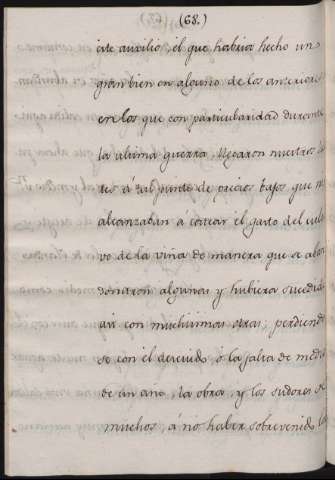 (68.)
este auxilio, el que habria hecho un
gran bien en alguno de los anteriores
en los que con particularidad durante
la ultima guerra, llegaron nuestros
tos á tal punto de precios bajos que no
alcanzaban á costear el gasto del culti
vo de la viña de manera que se aban
donaron algunas y hubiera sucedido
asi con muchisimas otras; perdiendo
se con el descuido, ó la falta de medios
de un año, la obra, y los sudores de
muchos, á no haber sobrevenido la